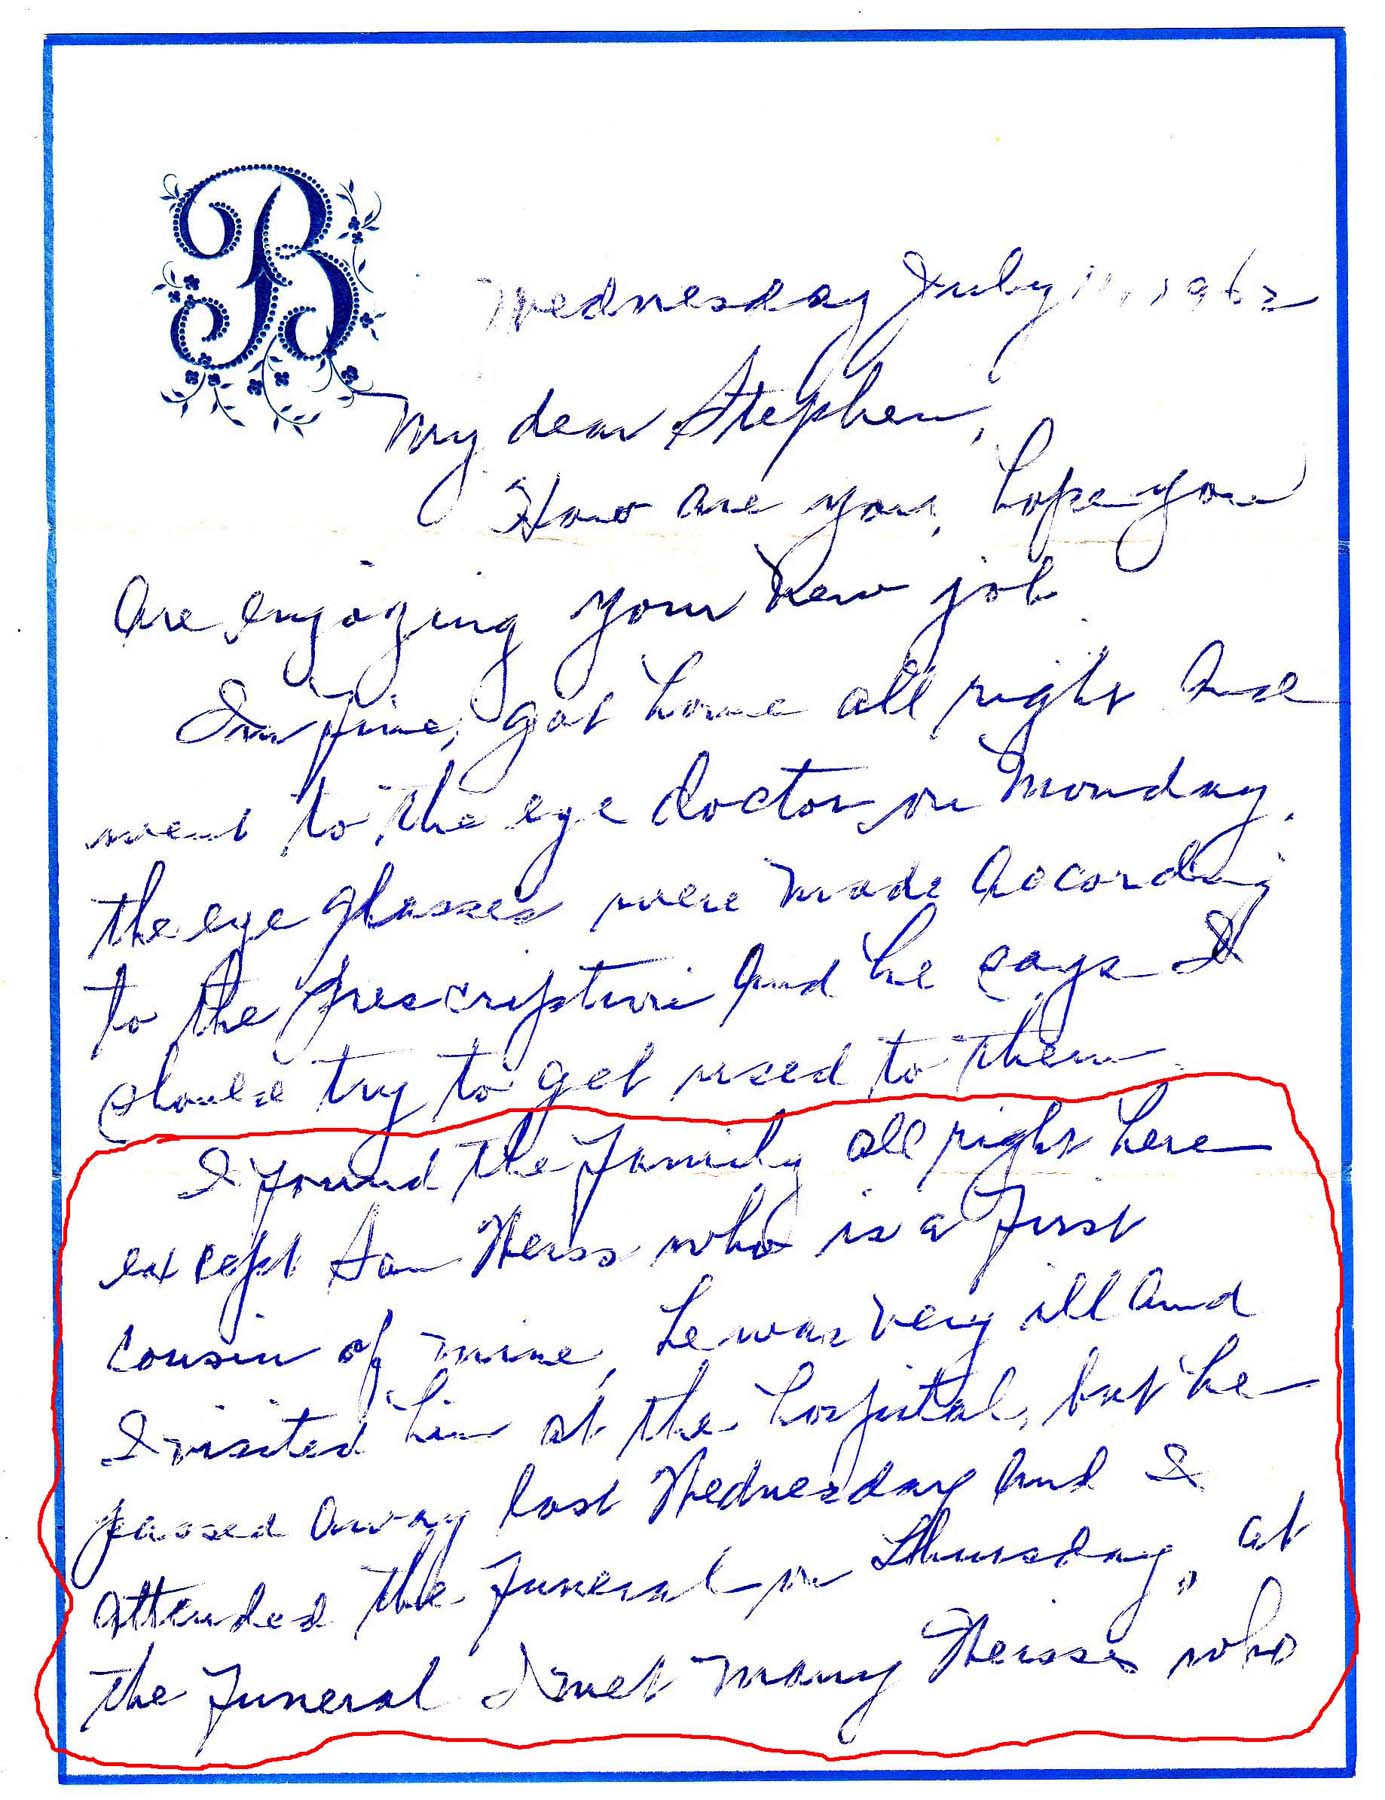 B
Wednesday July 11, 1962
My dear Stephen,
How are you, hope you
are enjoying your new job
I'm fine, got home all right and
went to the eye doctor on Monday,
the eye glasses were made according
to the prescription and he says I
should try to get used to them.
I found the family all right here
except Sam Weiss who is a first
cousin of mine, he was very ill and
I visited him at the hospital, but he
passed away last Wednesday and I
attended the funeral on Thursday, at
the funeral I met many Weisses who